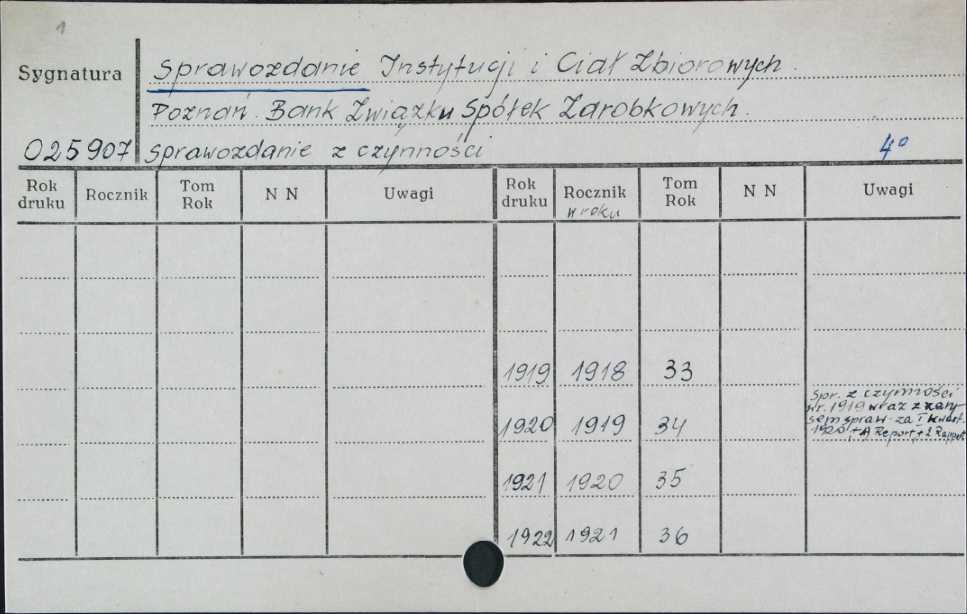 1
Sygnatura
Sprawozdanie Instytucji i Ciał Zbiorowych.
Poznań. Bank Związku Spółek Zarobkowych.
025907 Sprawozdanie z czynności 4°
Rok druku Rocznik Tom Rok N N Uwagi Rok druku Rocznik w roku Tom Rok N N Uwagi
1919 1918 33
1920 1919 34
Spr. z czynności
w r. 1919 wraz z zary-
sem spraw. za I kwart.
1920 + A Report + 2 Rapport
1921 1920 35
1922 1921 36